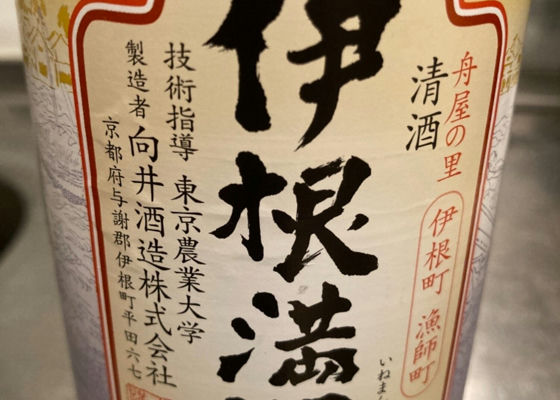 舟屋の里
伊根町 漁師町
清酒
伊根満
いねまん
技術指導 東京農業大学
製造者 向井酒造株式会社
京都府与謝郡伊根町平田六七